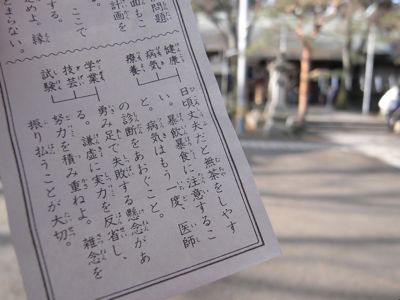 問題
面もこ
計画を
ここで
する。
めよ。縁
とまらない。
健康
病気
療養
日頃丈夫だと無茶をしやす
い。暴飲暴食に注意するこ
と。病気はもう一度、医師
の診断をあおぐこと。
学業
技芸
試験
勇み足で失敗する懸念があ
る。謙虚に実力を反省し、
努力を積み重ねよ。雑念を
振り払うことが大切。